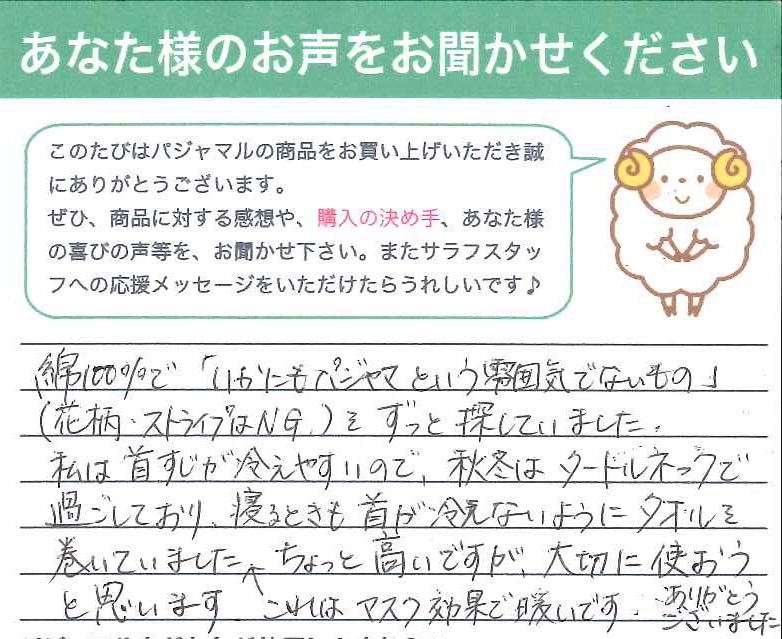 あなた様のお声をお聞かせください
このたびはパジャマルの商品をお買い上げいただき誠
にありがとうございます。
ぜひ、商品に対する感想や、購入の決め手、あなた様
の喜びの声等を、お聞かせ下さい。またサラフスタッ
フへの応援メッセージをいただけたらうれしいです♪
綿100%で「いかにもパジャマという雰囲気でないもの」
(花柄・ストライプはNG.)をずっと探していました。
私は首すじが冷えやすいので、秋冬はタートルネックで
過ごしており、寝るときも首が冷えないようにタオルを
巻いていました。ちょっと高いですが、大切に使おう
と思います。これはマスク効果で暖いです。ありがとう
ございました